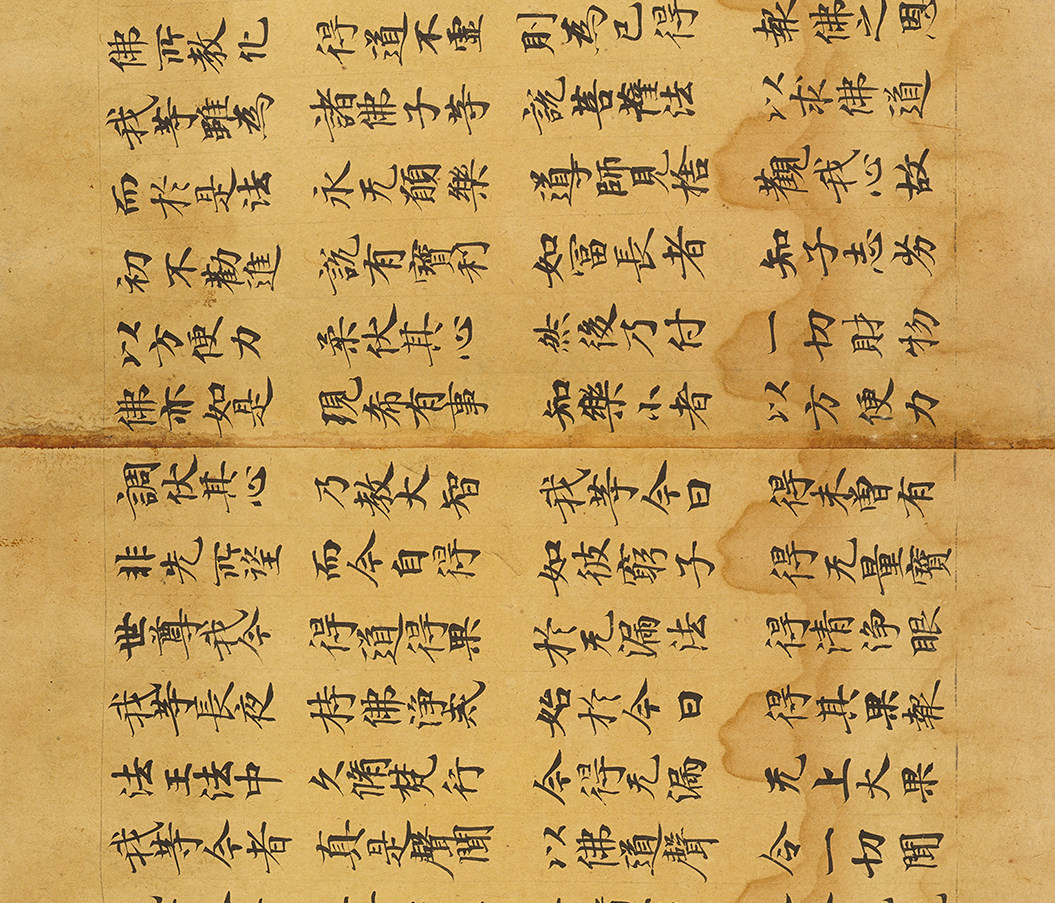 佛所教化 得道不虛 則為已得 報佛之恩
我等雖為 諸佛子等 說菩薩法 以求佛道
而於是法 永无願樂 導師見捨 觀我心故
初不勸進 說有實利 如富長者 知子志劣
以方便力 柔伏其心 然後乃付 一切財物
佛亦如是 現希有事 知樂小者 以方便力
調伏其心 乃教大智 我等今日 得未曾有
非先所望 而今自得 如彼窮子 得无量寶
世尊我今 得道得果 於无漏法 得清淨眼
我等長夜 持佛淨戒 始於今日 得其果報
法王法中 久脩梵行 今得无漏 无上大果
我等今者 真是聲聞 以佛道聲 令一切聞